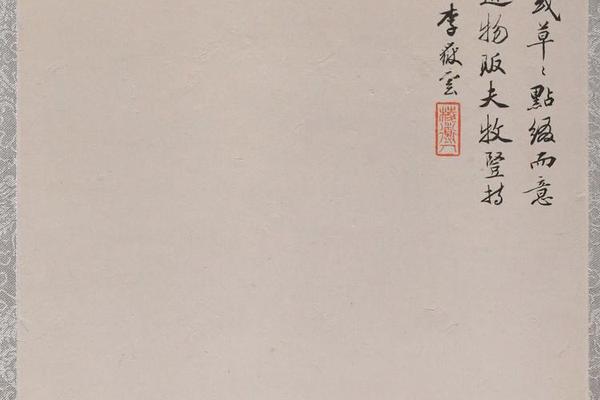 或草〻點綴而意
物販夫牧豎持
李嶽雲